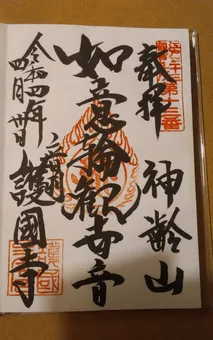 敬拝 神齢山
第十三番
如意輪観世音
護國寺
令和四年
四月卅日